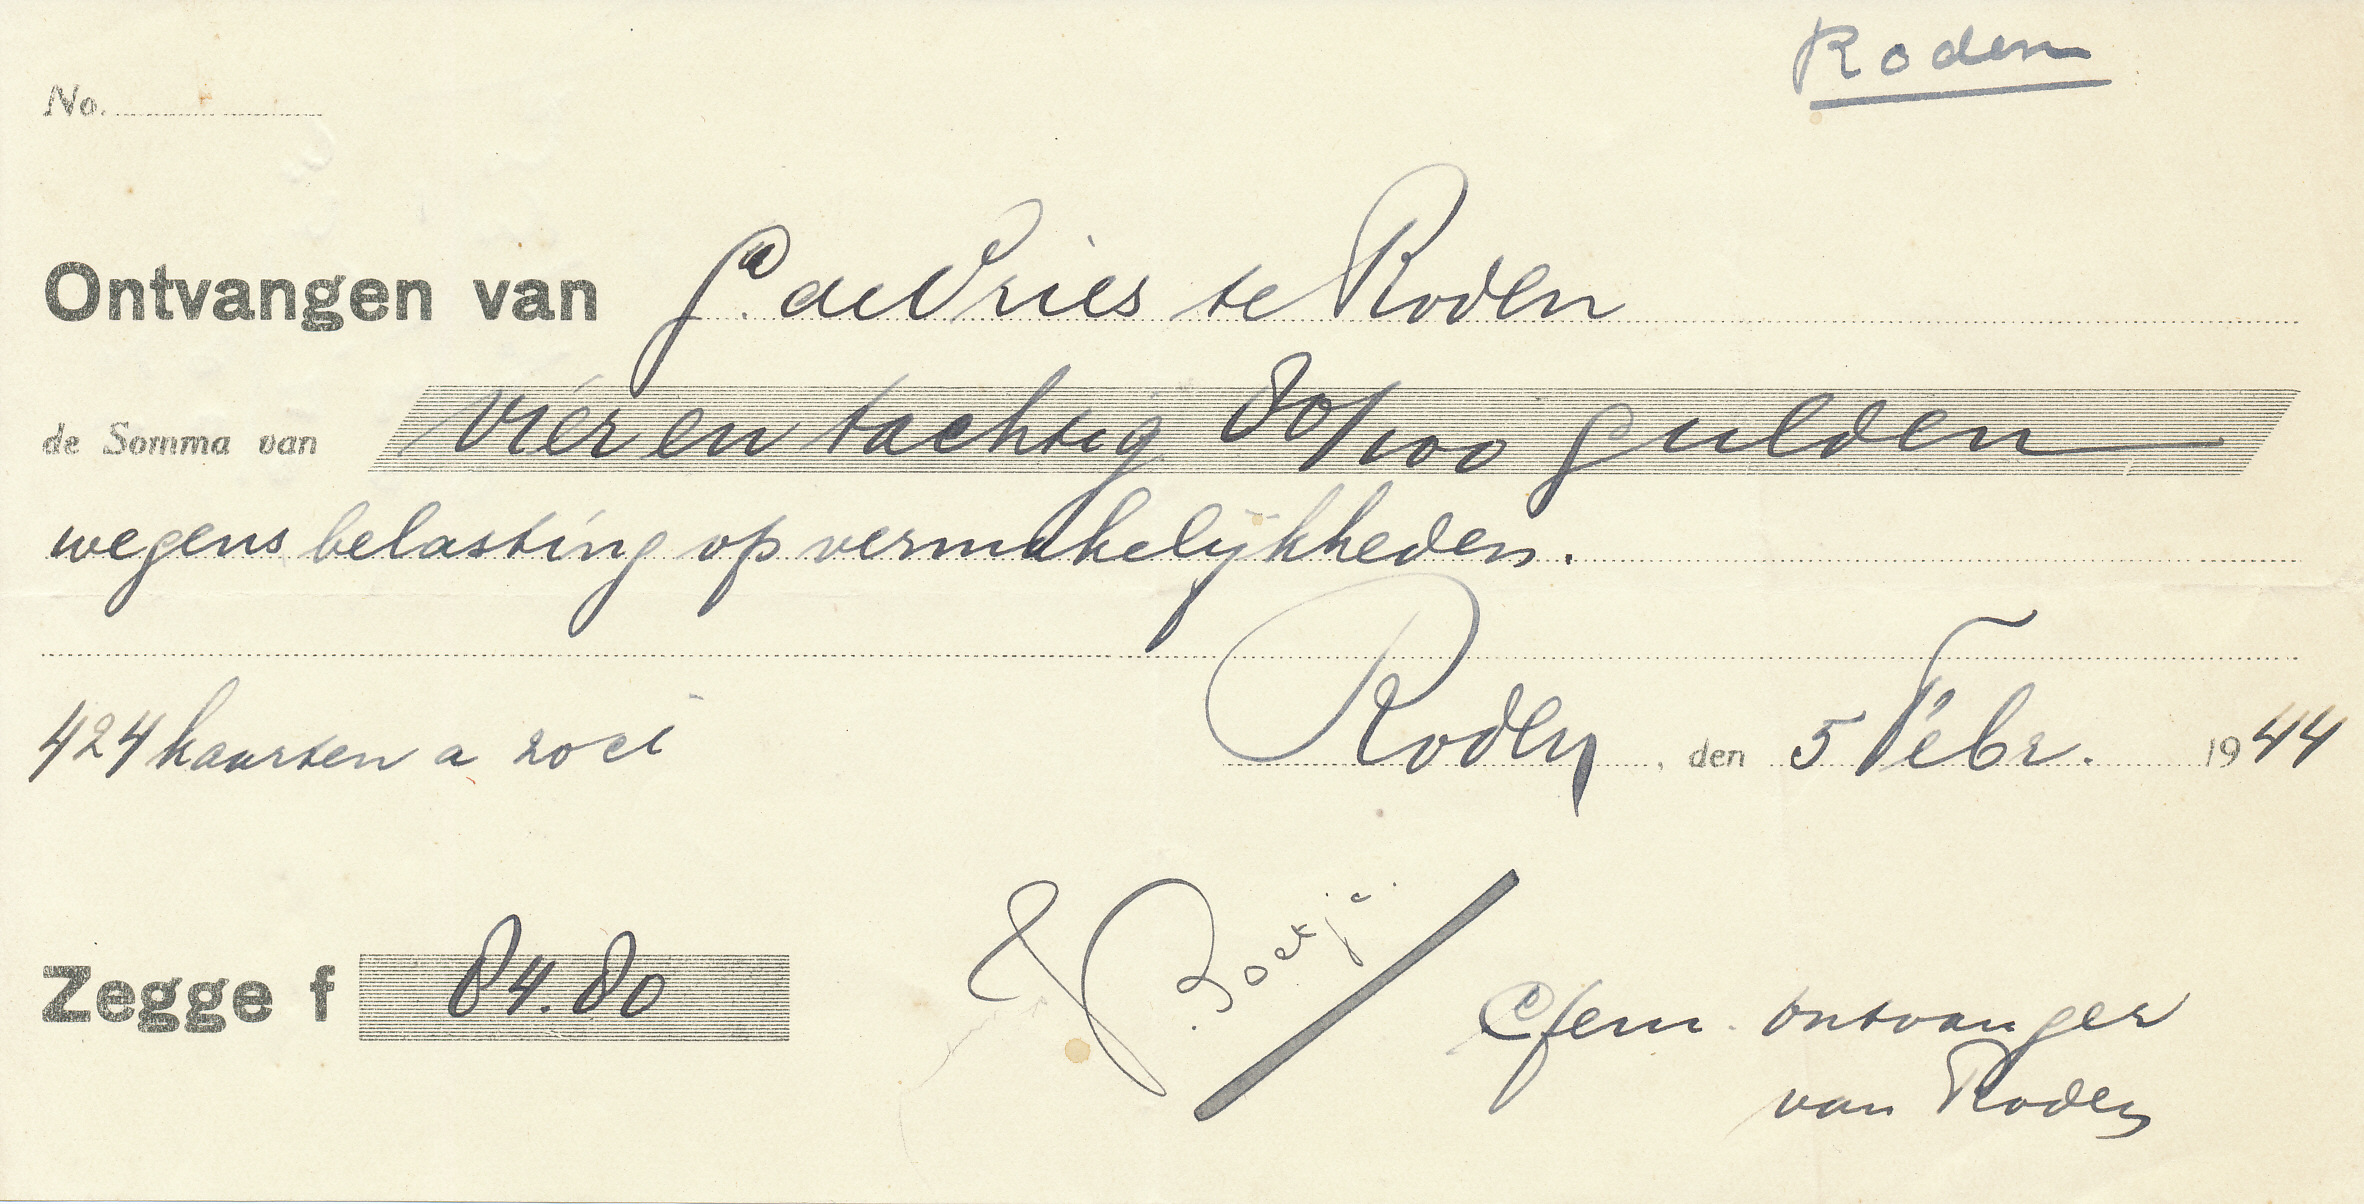 Roden
No.
Ontvangen van P. de Vries te Roden
de Somma van Vier en tachtig 80/100 gulden
wegens belasting op vermakelijkheden.
424 kaarten a 20 ct
Roden, den 5 Febr. 1944
Zegge f 84.80
ontvanger
van Roden